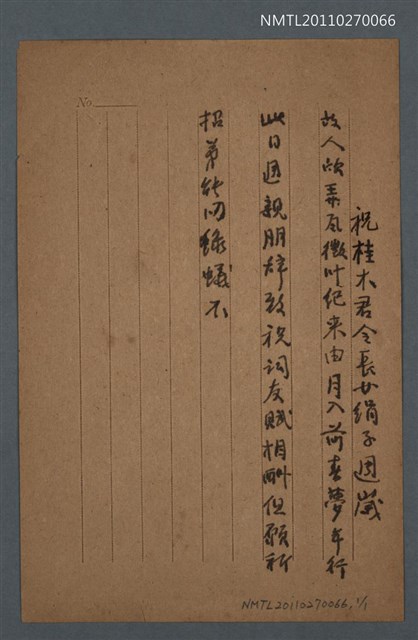 NMTL20110270066
No.
祝桂木君令長女絹子週歲
故人欣弄瓦徵叶紀來由月入前春夢年行
此日週親朋辞致祝詞友賦相酬但願祈
招弟能叨綠蟻不
NMTL20110270066, 1/1